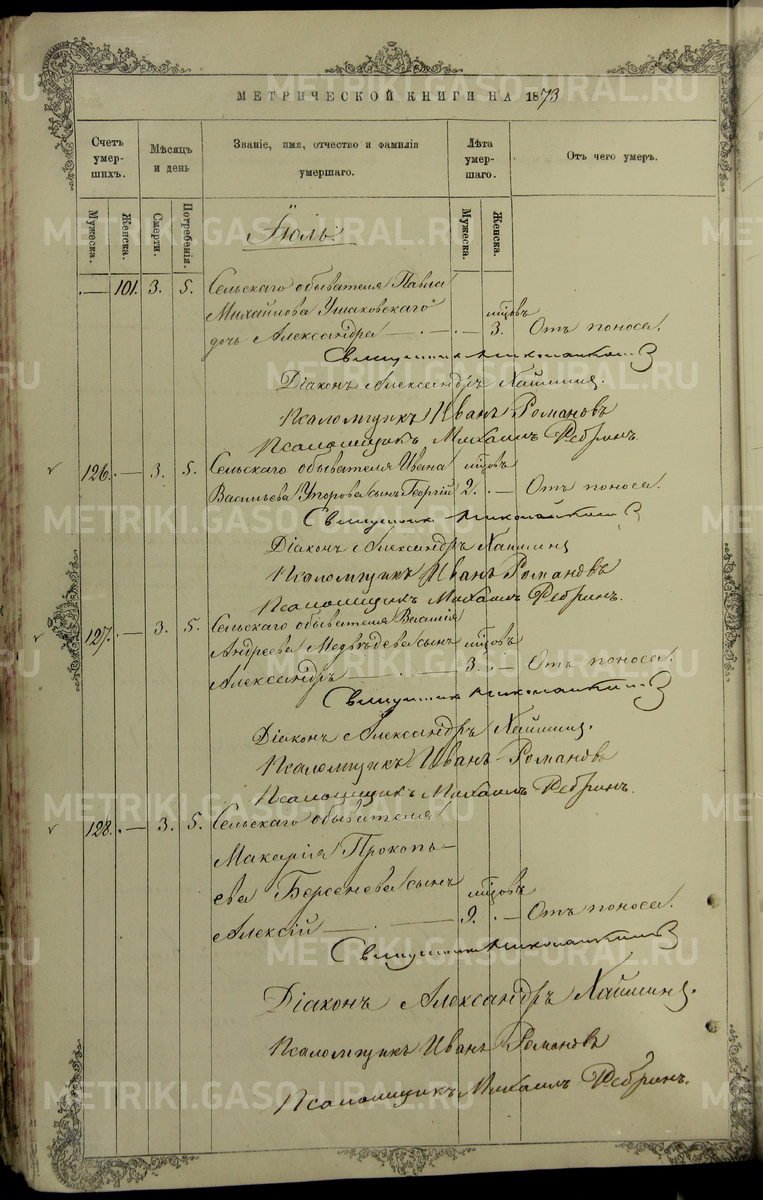 МЕТРИЧЕСКОЙ КНИГИ НА 1873
Счетъ умер-шихъ.
Мѣсяцъ и день
Званіе, имя, отчество и фамилія умершаго.
Лѣта умер-шаго.
Отъ чего умеръ.
Мужеска.
Женска.
Смерти.
Погребенія.
Мужеска.
Женска.
Іюль.
— 101. 3. 5. Сельскаго обывателя Павла
Михайлова Ушаковскаго мцовъ
дочь Александра — . — . — 3. Отъ поноса.
Священникъ
Діаконъ Александръ
Псаломщикъ Иванъ Романовъ
Псаломщикъ Михаилъ Ребринъ.
126. — 3. 5. Сельскаго обывателя Ивана мцовъ
Васильева Упорова сынъ Георгій 2. . — Отъ поноса.
Священникъ
Діаконъ Александръ
Псаломщикъ Иванъ Романовъ
Псаломщикъ Михаилъ Ребринъ.
127. — 3. 5. Сельскаго обывателя Василія
Андреева Медвѣдева сынъ мцовъ
Александръ — 3. . — Отъ поноса.
Священникъ
Діаконъ Александръ
Псаломщикъ Иванъ Романовъ
Псаломщикъ Михаилъ Ребринъ.
128. . — 3. 5. Сельскаго обывателя
Макарія Прокопь-
ева Берсенева сынъ мцовъ
Алексій — 9. . — Отъ поноса.
Священникъ
Діаконъ Александръ
Псаломщикъ Иванъ Романовъ
Псаломщикъ Михаилъ Ребринъ.
METRIKI.GASO-URAL.RU